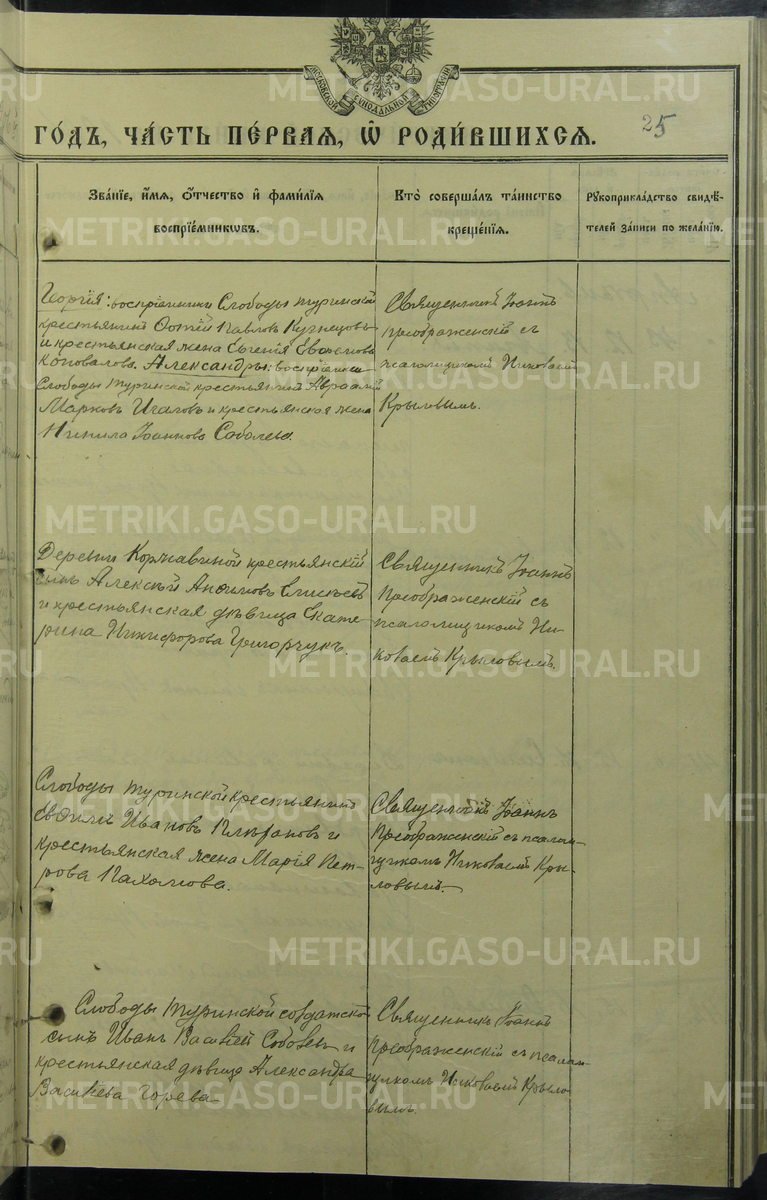 МОСКОВСКОЙ СѴНОДАЛЬНОЙ ТИПОГРАФІИ
ГО́ДЪ, ЧА́СТЬ ПЕ́РВАЯ, Ѡ҆ РОДИ́ВШИХСЯ.
25
Зва́нїе, и҆́мя, ѻ҆́тчество и҆ фами́лїя
воспрїе́мникѡвъ.
Кто̀ соверша́лъ та́инство
креще́нїя.
Рꙋкоприкла́дство свидѣ́-
телей за́писи по жела́нїю.
Георгія: воспріемники Слободы Туринской
крестьянинъ Фотій Павловъ Кузнецовъ
и крестьянская жена Евгенія
Коновалова. Александры: воспріемники
Слободы Туринской крестьянинъ Авраамій
Марковъ и крестьянская жена
Іоаннова Соболева.
Священникъ Іоаннъ
Преображенскій съ
псаломщикомъ Николаемъ
Крыловымъ.
Деревни Коржавиной крестьянскій
сынъ Алексѣй Анфимовъ Елисѣевъ
и крестьянская дѣвица Екате-
рина Никифорова Григорчукъ.
Священникъ Іоаннъ
Преображенскій съ
псаломщикомъ Ни-
колаемъ Крыловымъ.
Слободы Туринской крестьянинъ
Ивановъ и
крестьянская жена Марія Пет-
рова Пахомова.
Священникъ Іоаннъ
Преображенскій съ псалом-
щикомъ Николаемъ Кры-
ловымъ.
Слободы Туринской солдатской
сынъ Иванъ Васильевъ и
крестьянская дѣвица Александра
Васильева Горева.
Священникъ Іоаннъ
Преображенскій съ псалом-
щикомъ Николаемъ Крыло-
вымъ.
METRIKI.GASO-URAL.RU